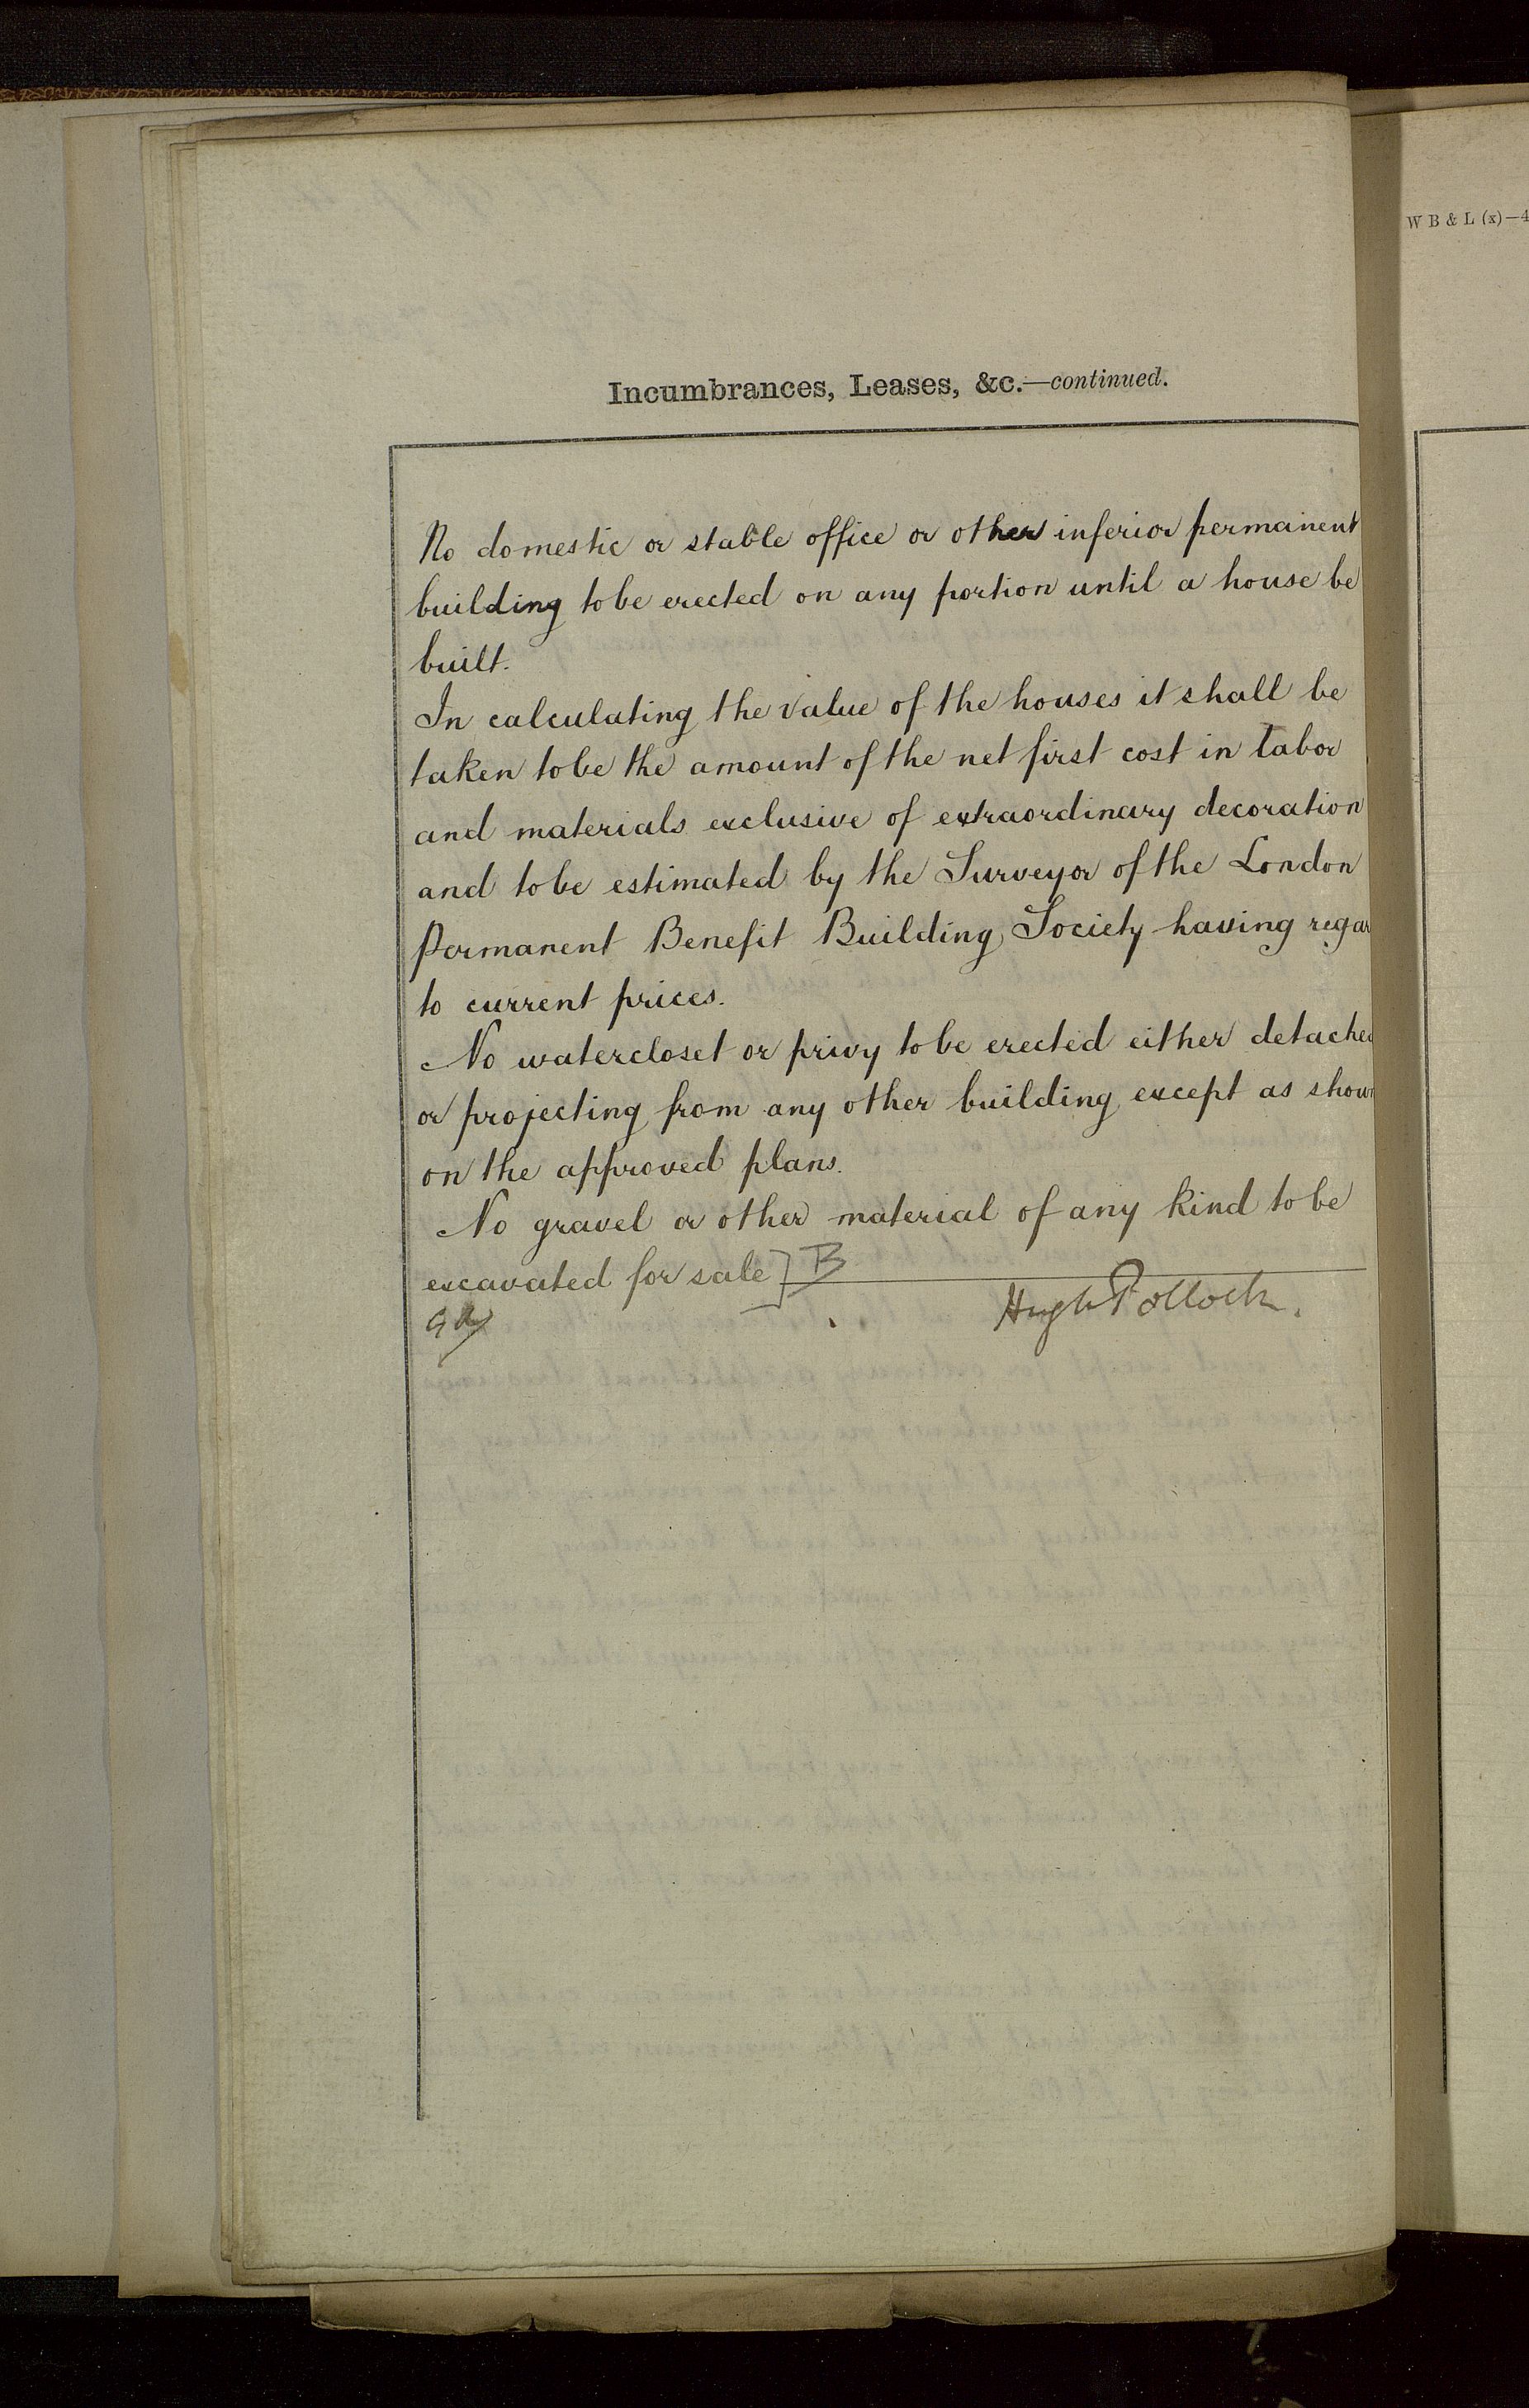 W B & L (x)—4
Incumbrances, Leases, &c.—continued.
No domestic or stable office or other inferior permanent
building to be erected on any portion until a house be
built.
In calculating the value of the houses it shall be
taken to be the amount of the net first cost in labor
and materials exclusive of extraordinary decoration
and to be estimated by the Surveyor of the London
Permanent Benefit Building Society having regar
to current prices.
No watercloset or privy to be erected either detached
or projecting from any other building except as shown
on the approved plans.
No gravel or other material of any kind to be
excavated for sale] B
Hugh Pollock.